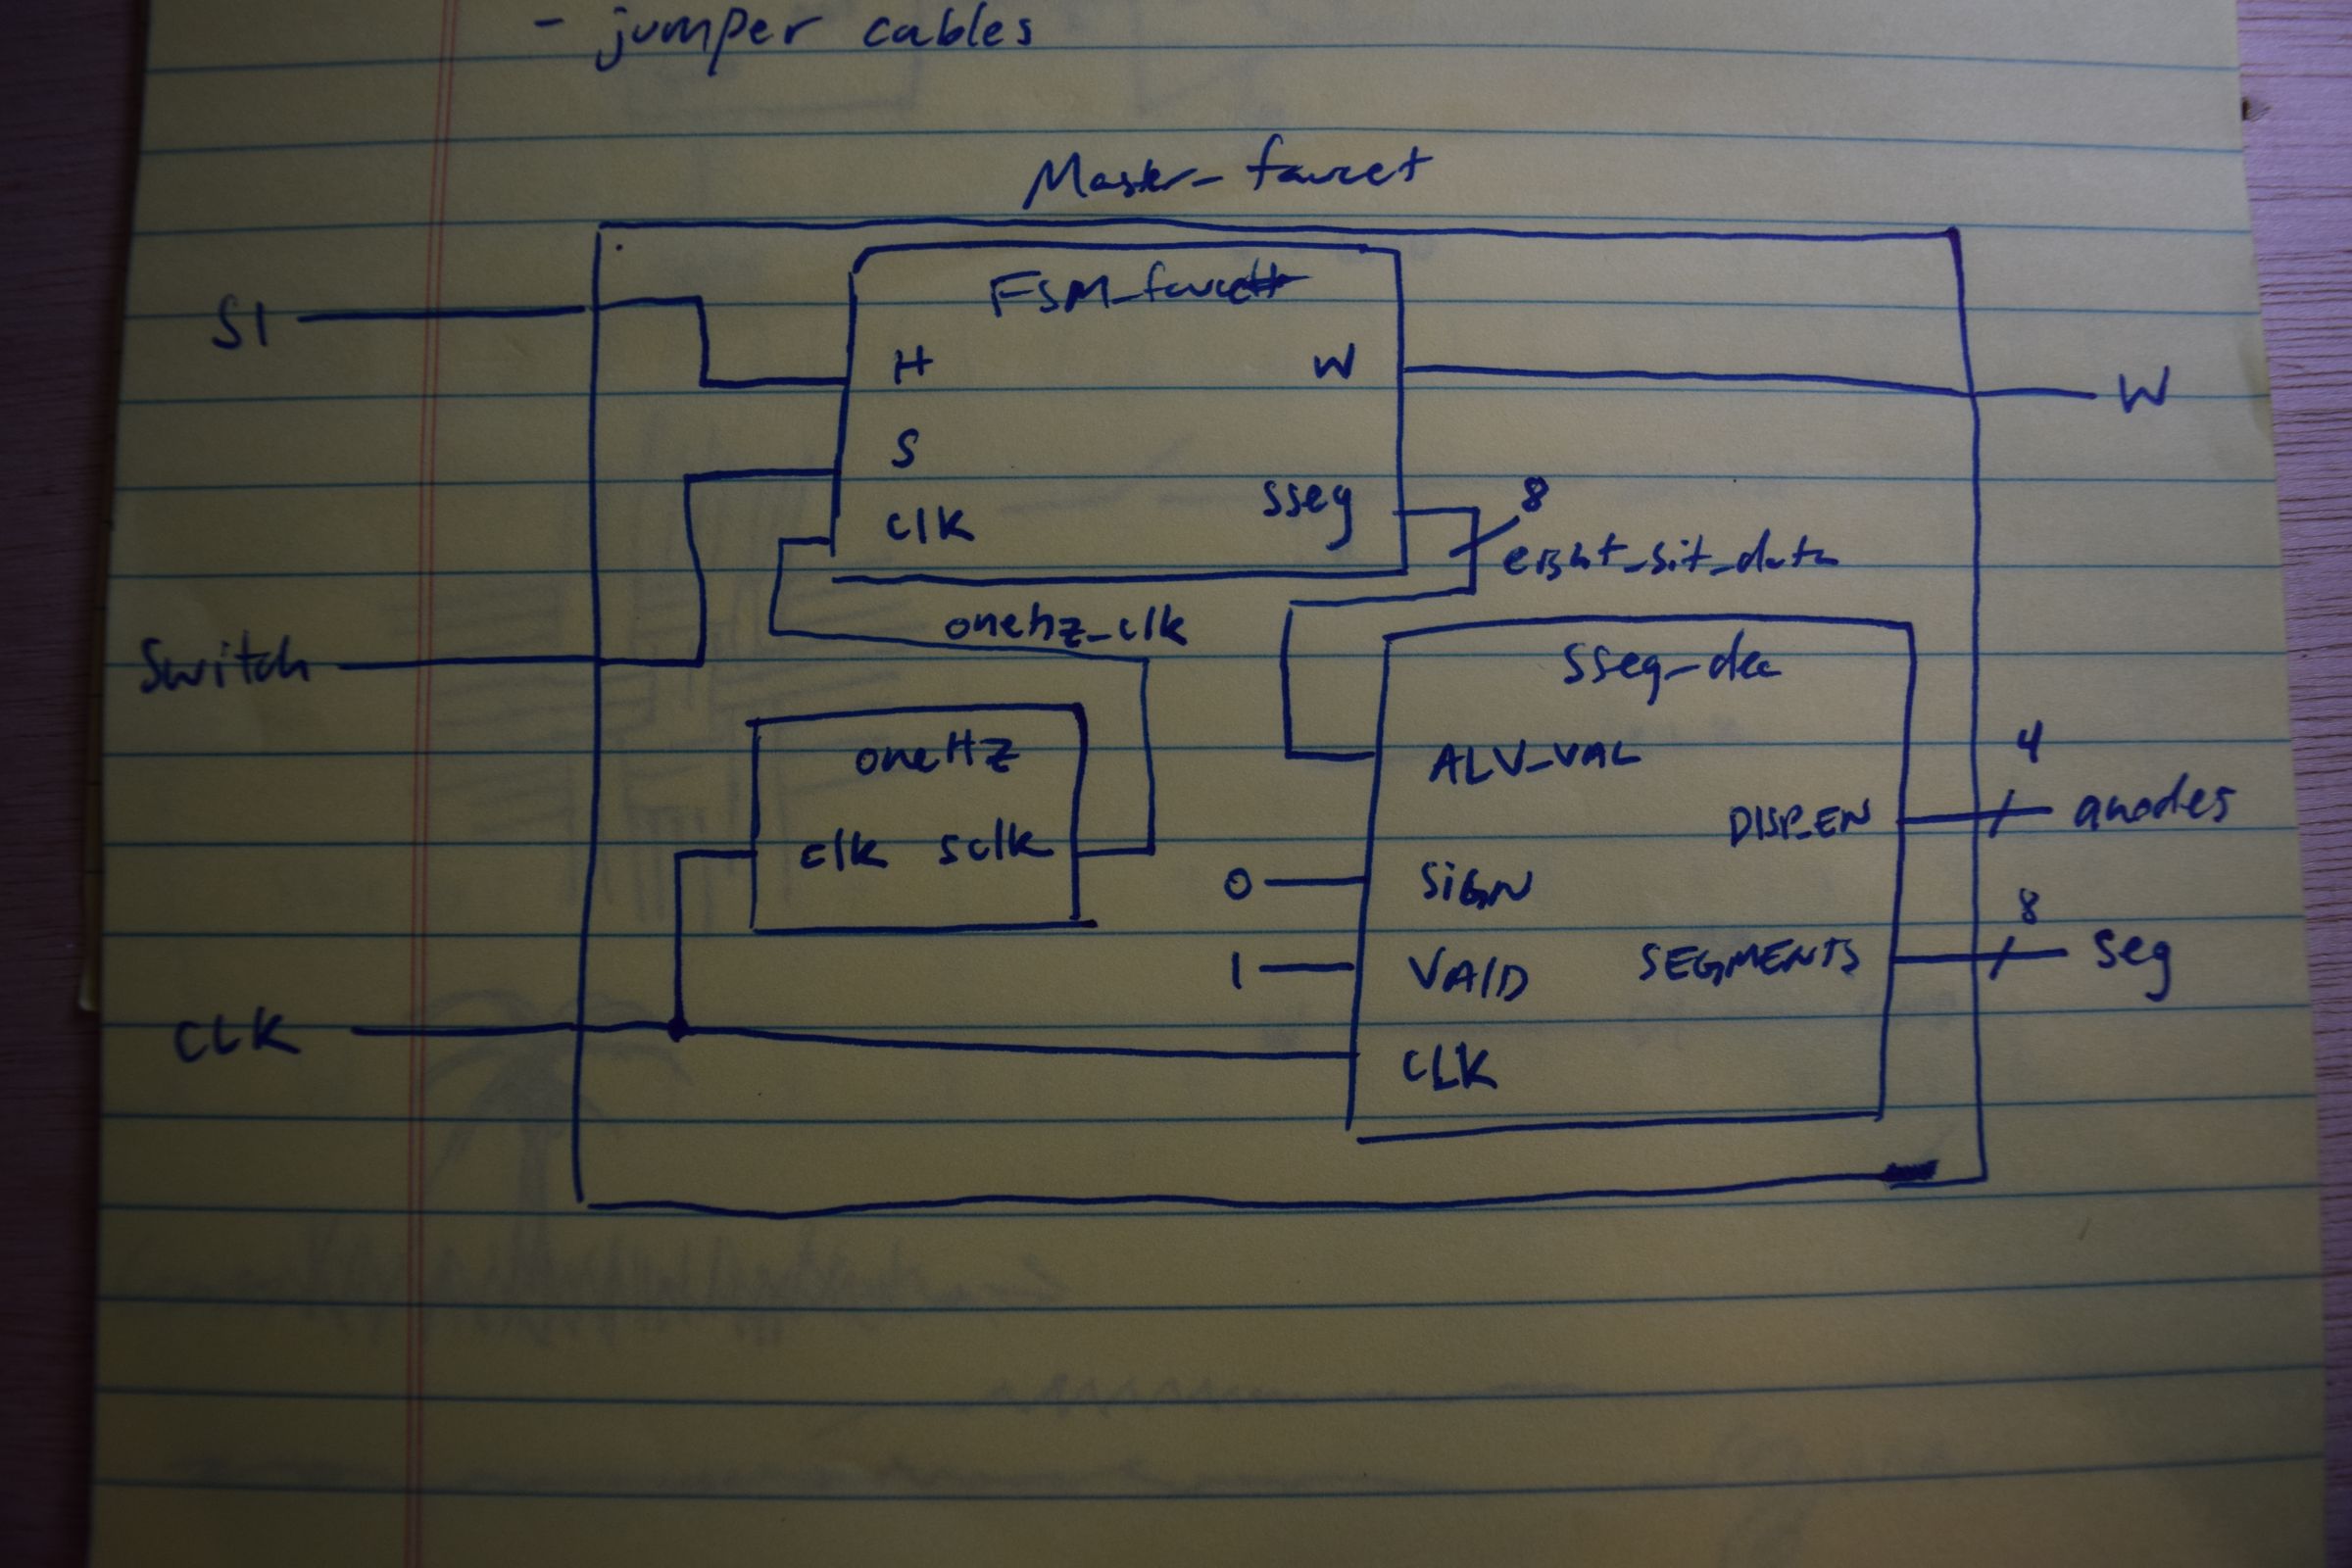 - jumper cables
Master_faucet
FSM_faucet
S1
H
W
W
S
clk
sseg
8
eight_bit_data
onehz_clk
Switch
sseg_dec
oneHz
clk sclk
ALU_VAL
4
DISP_EN
anodes
0
SiGN
8
1
VAID
SEGMENTS
seg
CLK
CLK